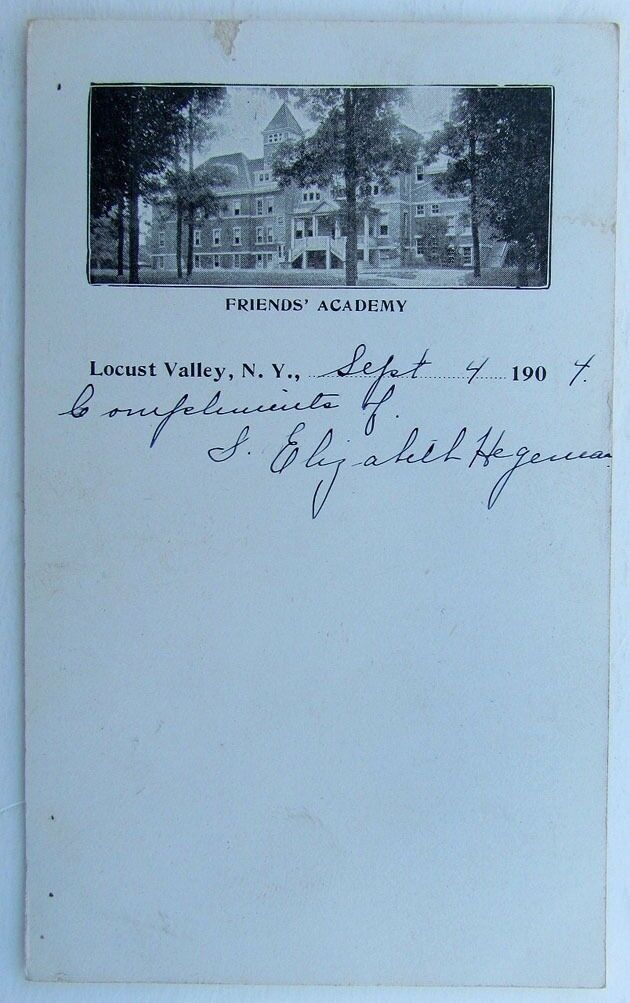 FRIENDS' ACADEMY
Locust Valley, N. Y., Sept 4 1904.
Compliments of.
S. Elizabeth Hegeman